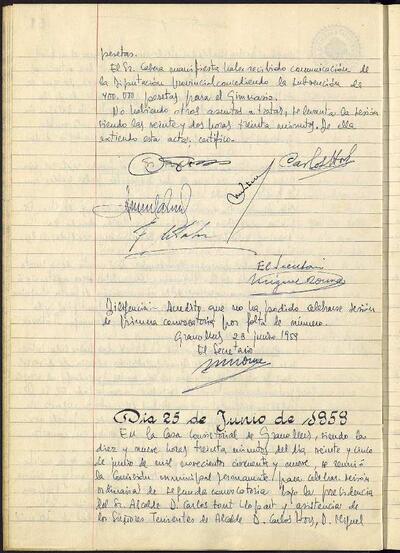 pesetas.
El Sr. Cabera manifiesta haber recibido comunicación de
la Diputación provincial concediendo la subvención de
400.000 pesetas para el Gimnasio.
No habiendo otros asuntos a tratar, se levanta la sesión
siendo las veinte y dos horas treinta minutos. De ella
extiendo esta acta; certifico.
El Secretario
Diligencia.- Acredito que no ha podido celebrarse sesión
de primera convocatoria por falta de número.
Granollers 23 junio 1959
El Secretario
Dia 25 de Junio de 1959
En la Casa Consistorial de Granollers, siendo las
diez y nueve horas treinta minutos del dia veinte y cinco
de junio de mil novecientos cincuenta y nueve, se reunió
la Comisión municipal permanente para celebrar sesión
ordinaria de segunda convocatoria bajo la presidencia
del Sr. Alcalde D. Carlos Font Llopart y asistencia de
los Señores Tenientes de Alcalde D. Carlos D. Miguel